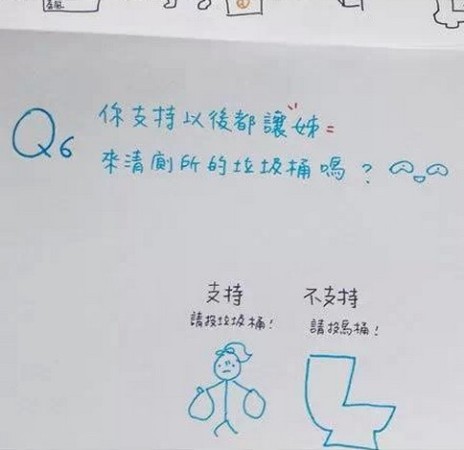 Q6
你支持以後都讓姊=
來清廁所的垃圾桶嗎?
支持 不支持
請投垃圾桶! 請投馬桶!